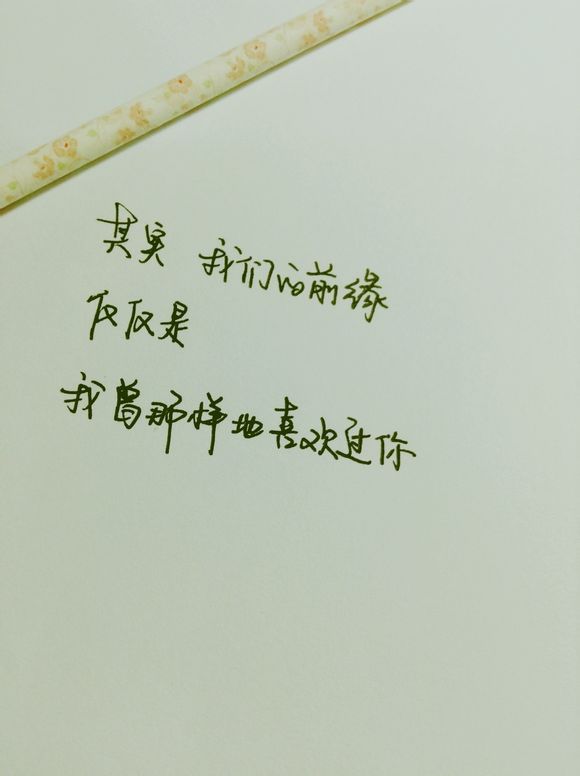 其实 我们的前缘
仅仅是
我曾那样地喜欢过你